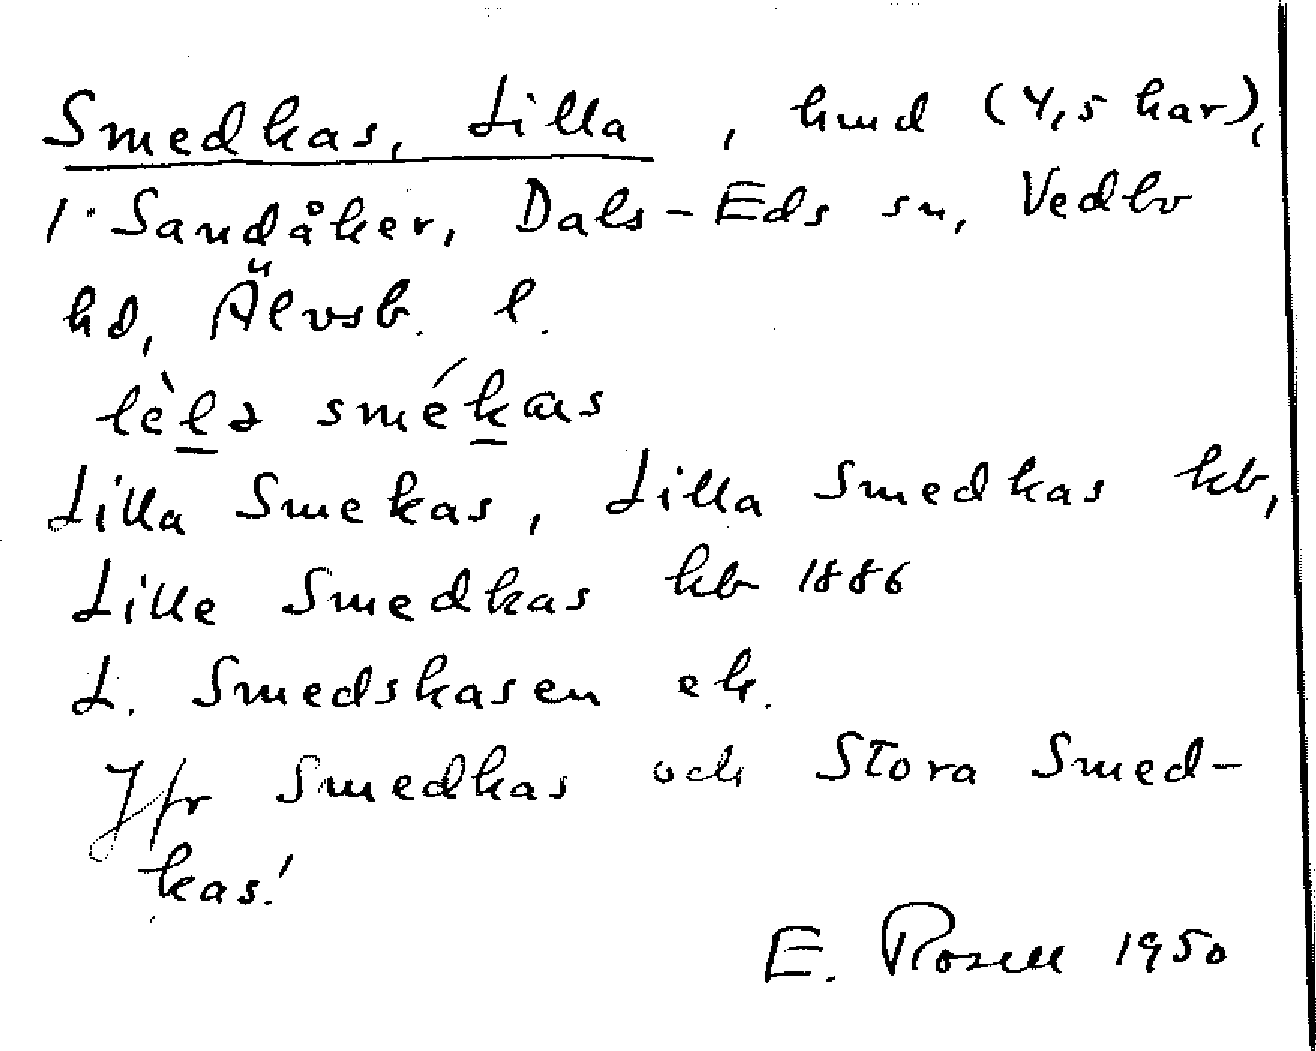 Smedkas, Lilla, hmd (4,5 har),
i Sandåker, Dals-Eds sn, Vedbo
hd, Älvsb. l.
lèlə smékas
Lilla Smekas, Lilla Smedkas kb,
Lille Smedkas kb 1886
L. Smedskasen ek.
Jfr Smedkas och Stora Smed-
kas!
E. Rosell 1950